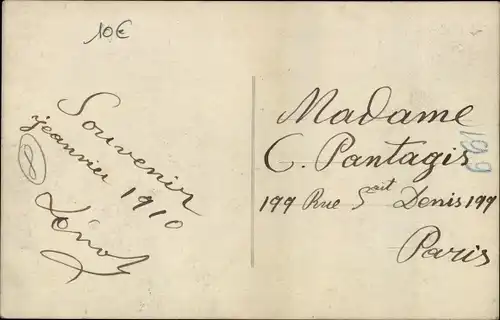 10€
Souvenir
jeanvier 1910
8
Madame
C. Pantagis
199 Rue Sait Denis 199
Paris